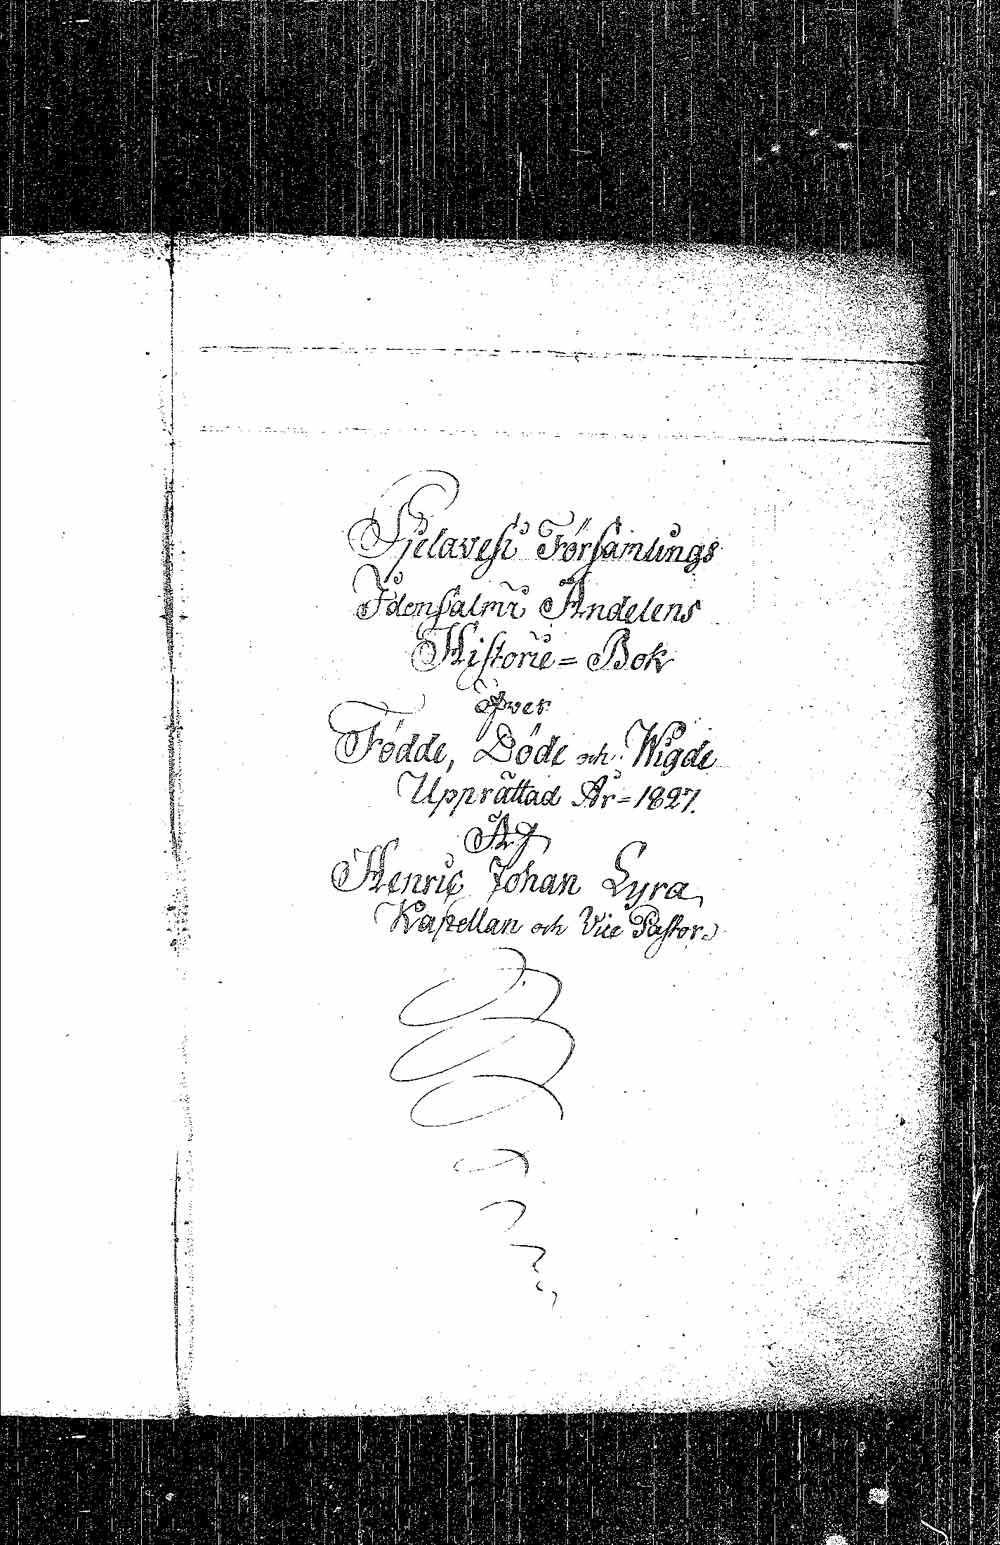 Pjelavesi Församlings
Idensalmi Andelens
Historie=Bok
öfver
Födde, Döde och Wigde
Upprättad År=1827.
Af
Henric Johan Lyra,
Kapellan och Vice Pastor.